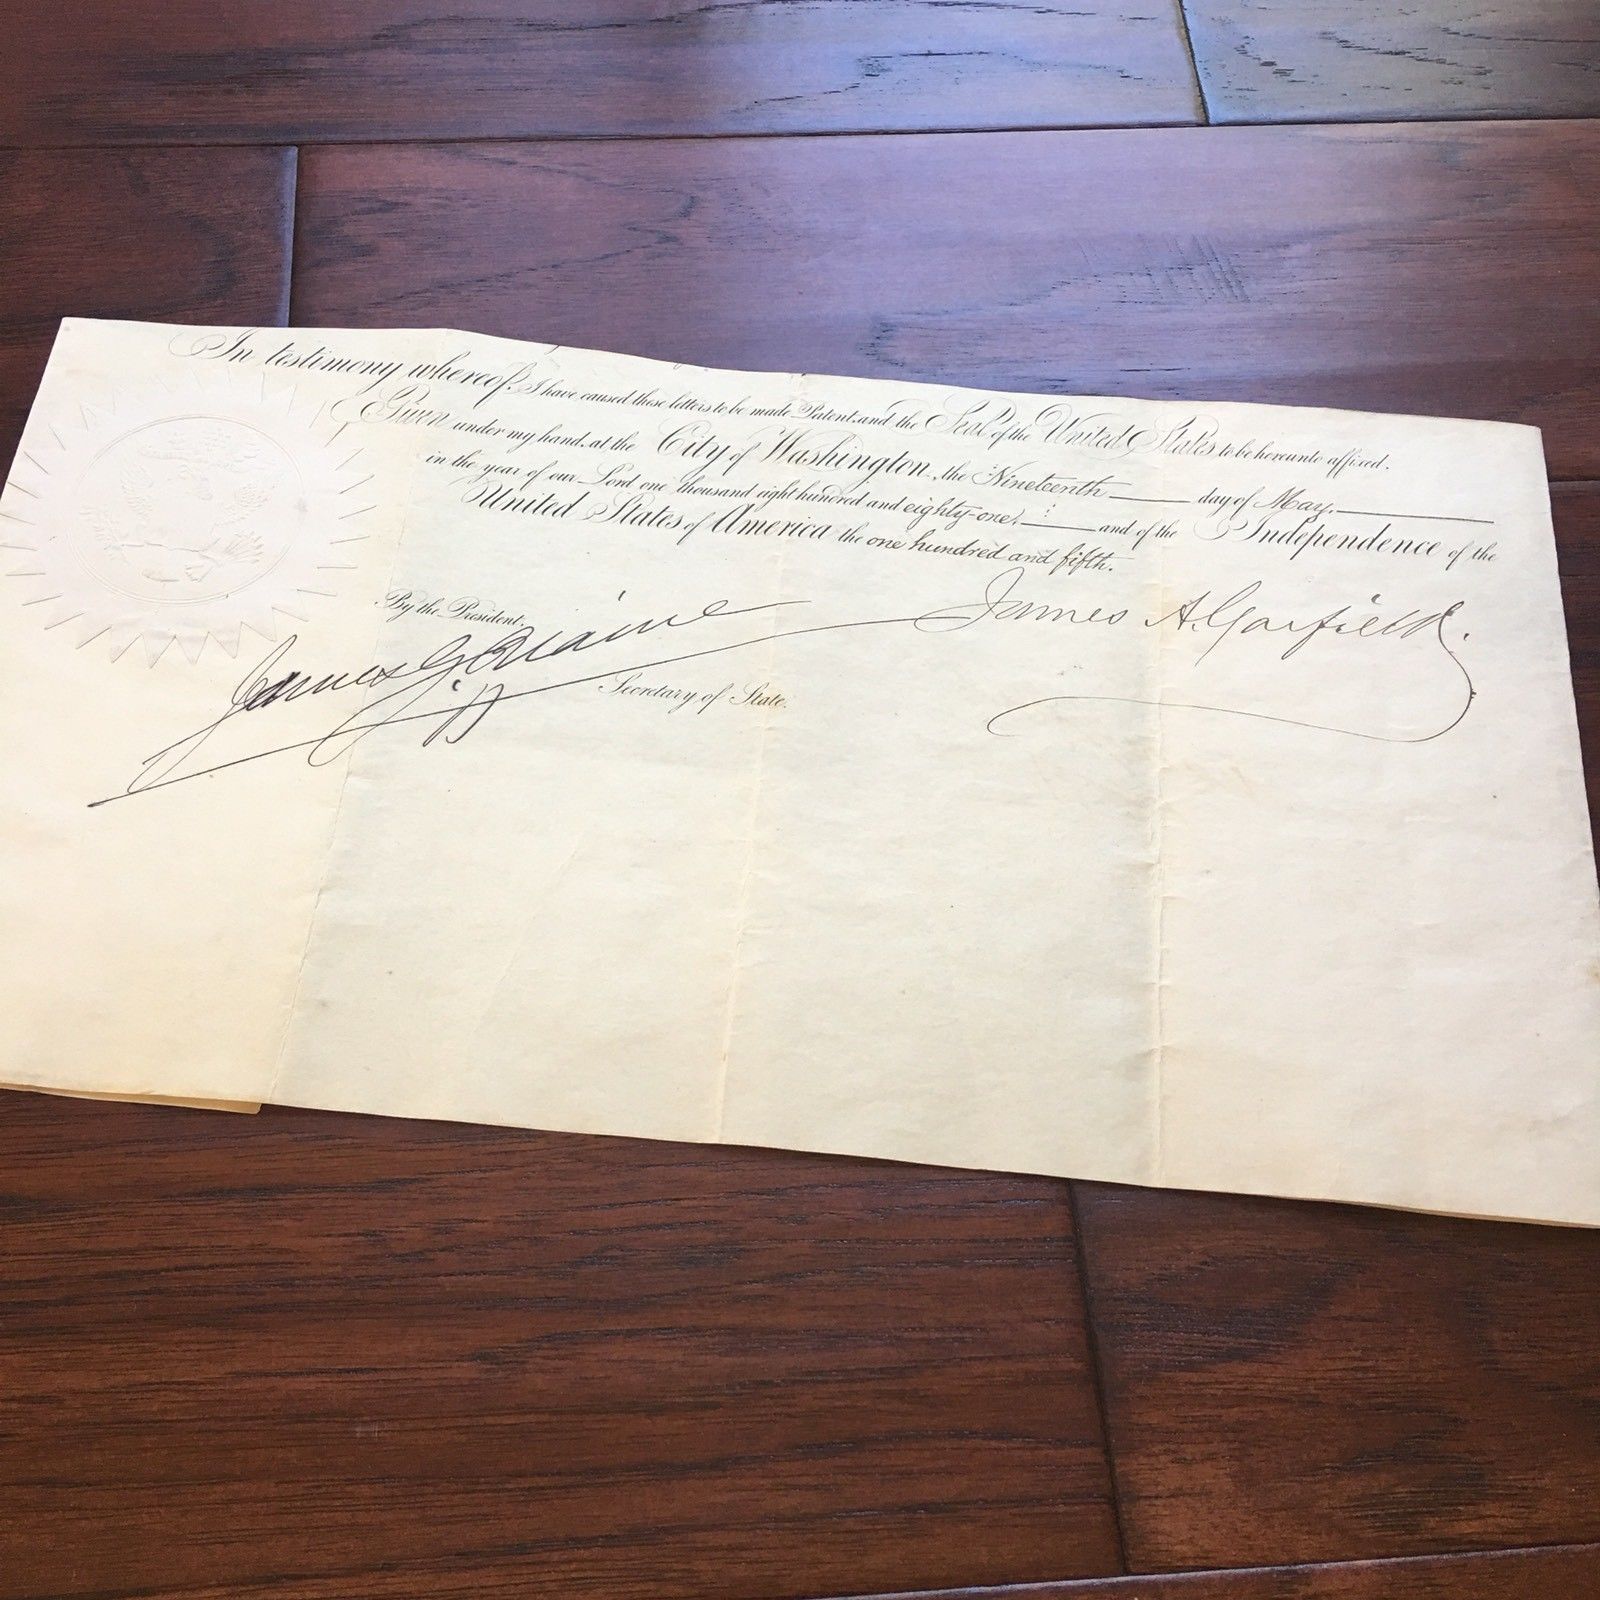 In testimony whereof, I have caused these letters to be made Patent, and the Seal of the United States to be hereunto affixed.
Given under my hand, at the City of Washington, the Nineteenth day of May,
in the year of our Lord one thousand eight hundred and eighty-one, and of the Independence of the
United States of America the one hundred and fifth.
James A. Garfield.
By the President:
James G. Blaine
Secretary of State.